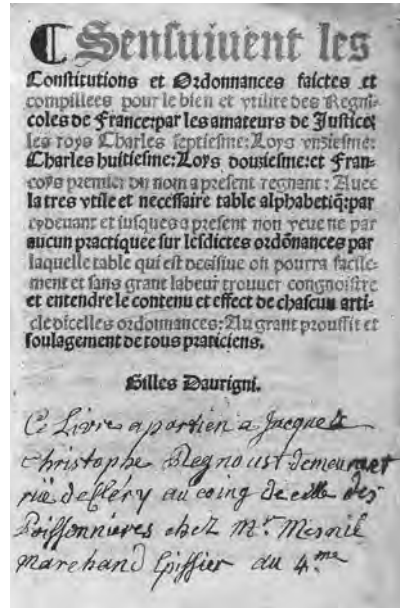 ❡ Sensuiuent les
Constitutions et Ordonnances faictes et
compillees pour le bien et vtilite des Regni-
coles de France: par les amateurs de Justice:
les roys Charles septiesme: Loys vnziesme:
Charles huitiesme: Loys douziesme: et Fran-
coys premier du nom a present regnant: Auec
la tres vtile et necessaire table alphabetiq̃: par
cydeuant et iusques a present non veue ne par
aucun practiquee sur lesdictes ordõnances par
laquelle table qui est decisiue on pourra facile-
ment et sans grant labeur trouuer congnoistre
et entendre le contenu et effect de chascun arti-
cle dicelles ordonnances: Au grant prouffit et
soulagement de tous praticiens.
Gilles Daurigni.
Ce Livre apartien a Jacques
christophe Regnoust demeurant
rüe de Cléry au coing de celle des
Poissonnieres chez Mr. Mesnil
marchand Epissier au 4.me